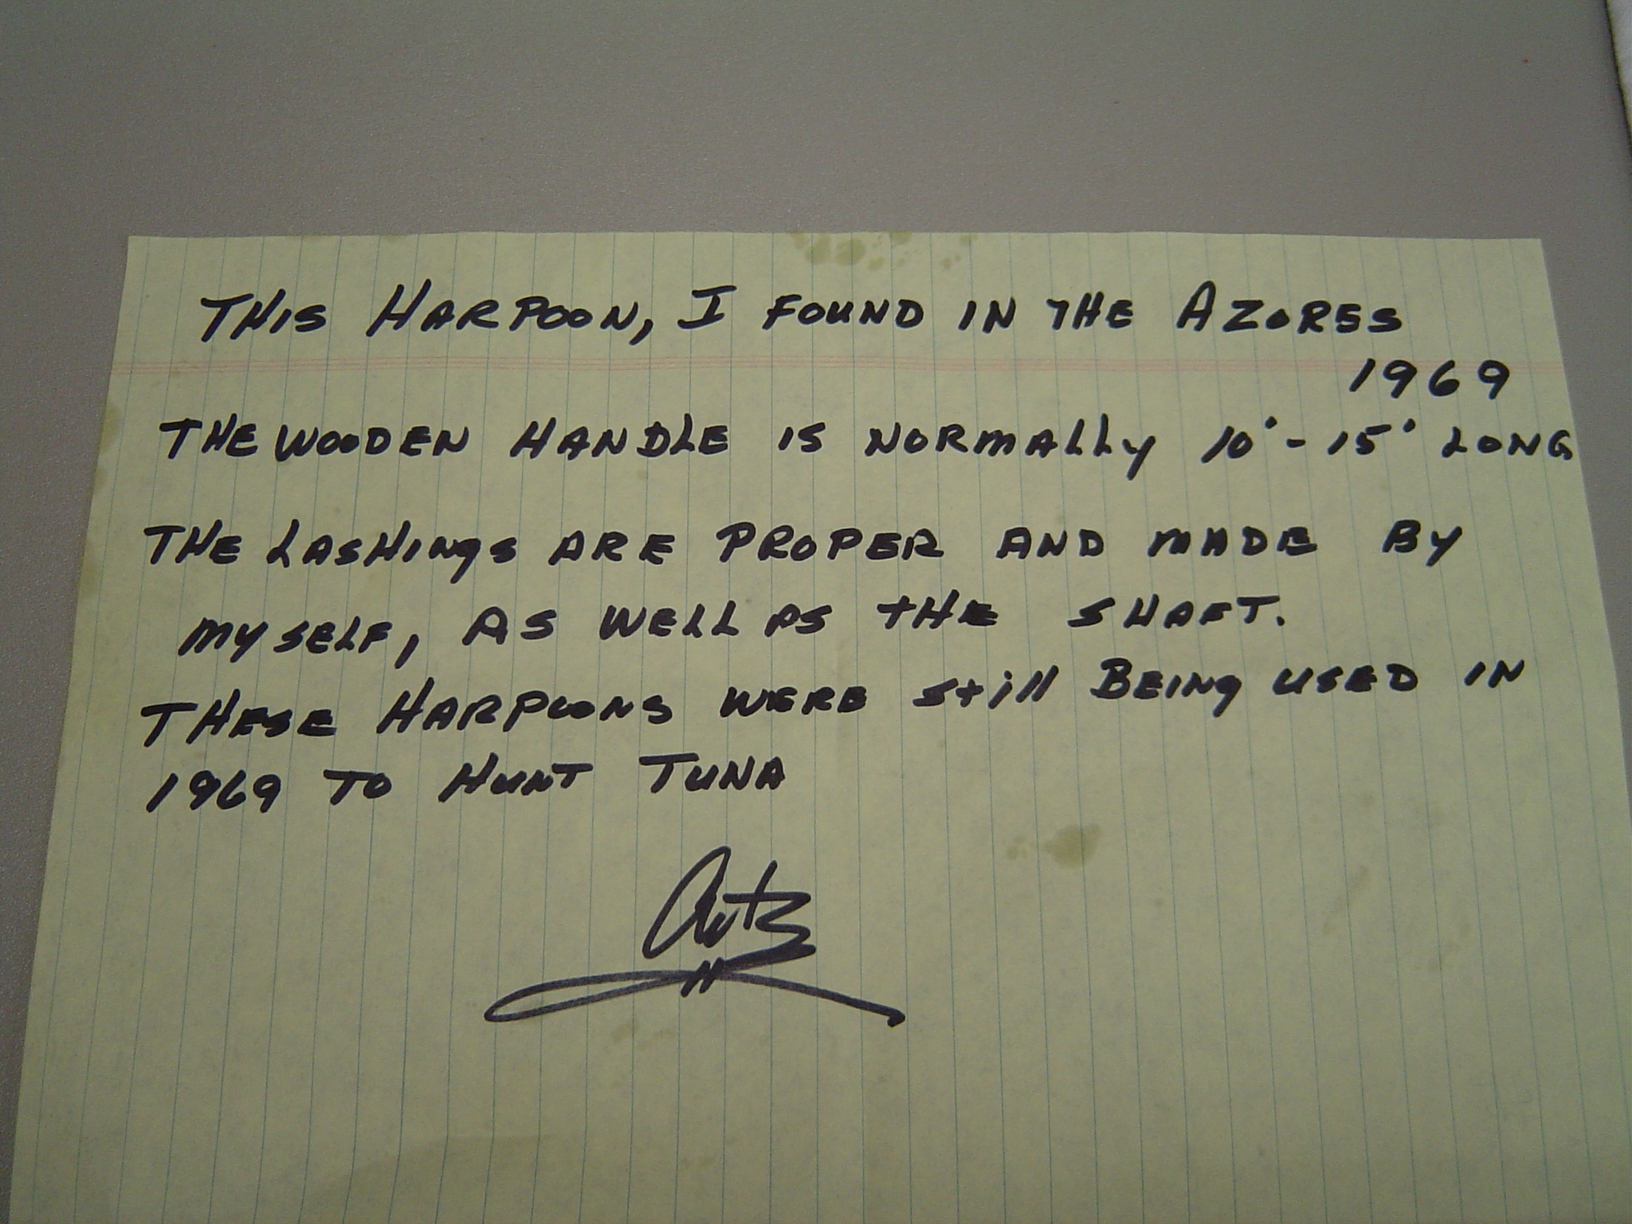 THIS HARPOON, I FOUND IN THE AZORES
1969
THE WOODEN HANDLE IS NORMALLY 10' - 15' LONG
THE LASHINgS ARE PROPER AND MADE BY
MYSELF, AS WELL AS tHE SHAFT.
THESE HARPOONS WERE still BEINg USED IN
1969 TO HUNT TUNA